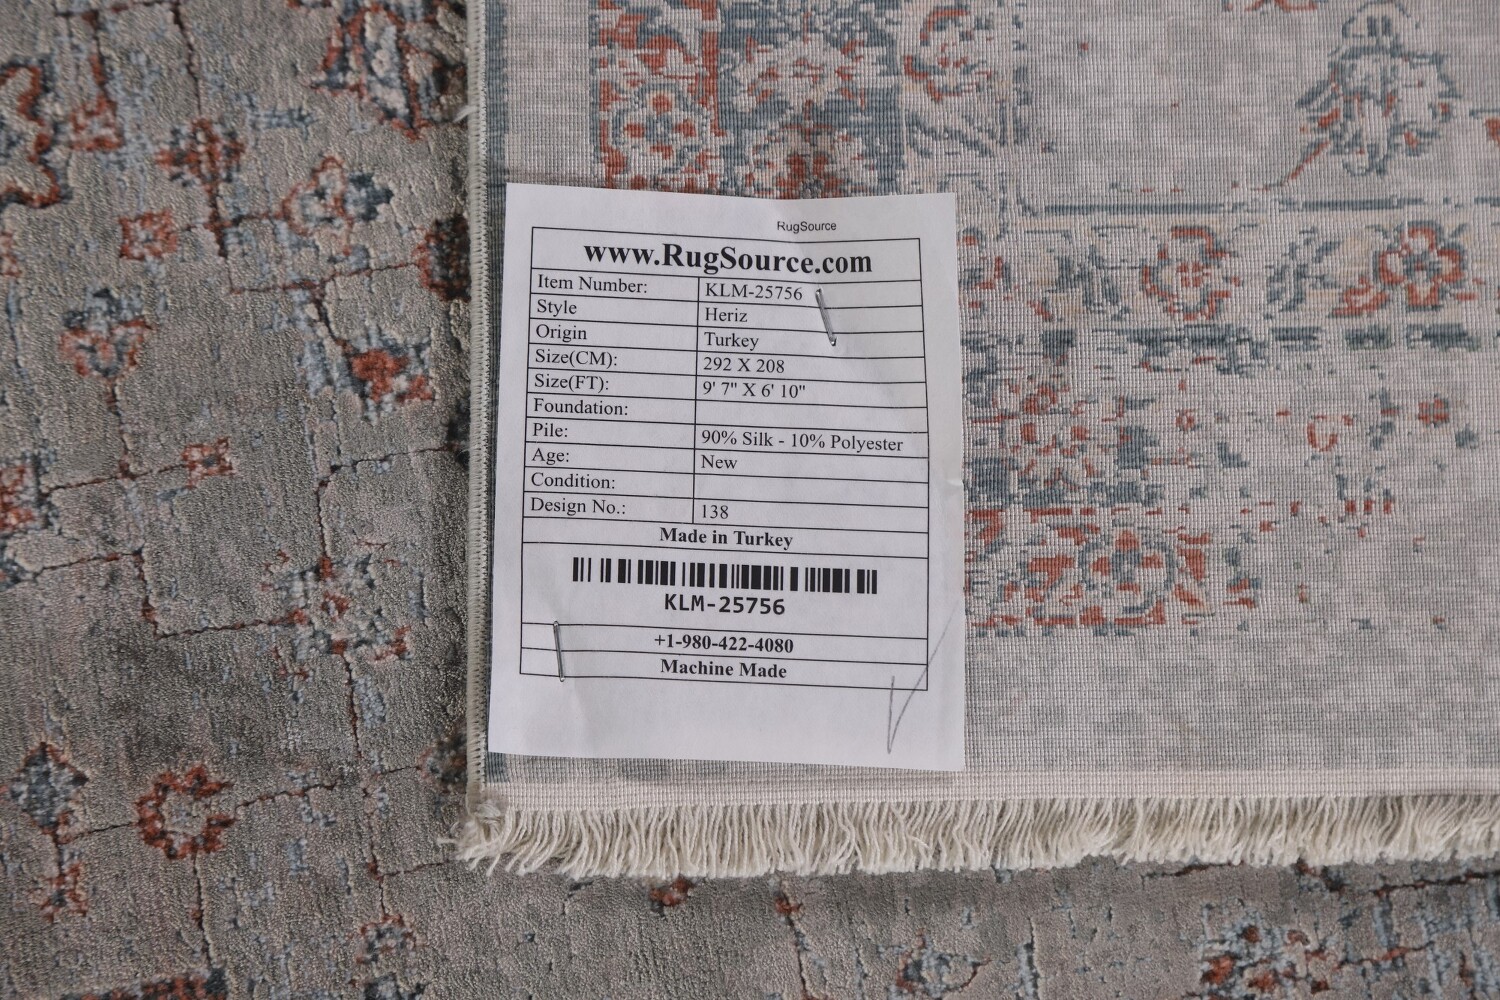 RugSource
www.RugSource.com
Item Number: KLM-25756
Style Heriz
Origin Turkey
Size(CM): 292 X 208
Size(FT): 9' 7" X 6' 10"
Foundation:
Pile: 90% Silk - 10% Polyester
Age: New
Condition:
Design No.: 138
Made in Turkey
KLM-25756
+1-980-422-4080
Machine Made